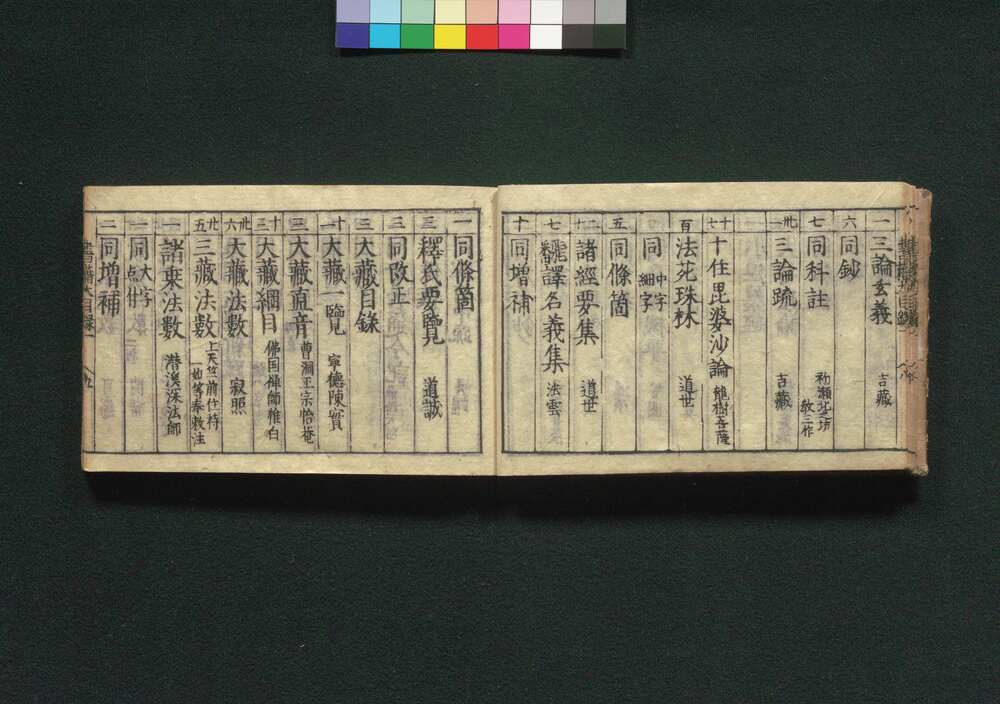 一 三論玄義 吉藏
六 同鈔
七 同科註
卅一 三論疏 吉藏
十七 十住毘婆沙論 龍樹菩薩
百 法苑珠林 道世
同 中字 細字
五 同條箇
二十 諸經要集 道世
七 飜譯名義集 法雲
十 同增補
一 同條箇
三 釋氏要覽 道誠
三 同改正
三 大藏目錄
十一 大藏一覽 寧德陳實
三 大藏直音 曹洞正宗怡菴
十三 大藏綱目 佛国禅師惟白
卅六 大藏法數 寂照
廿五 三藏法數 上天竺前住持 一如等奉敕注
一 諸乘法數 潜溪深法師
二 同 大字 点付
二 同增補